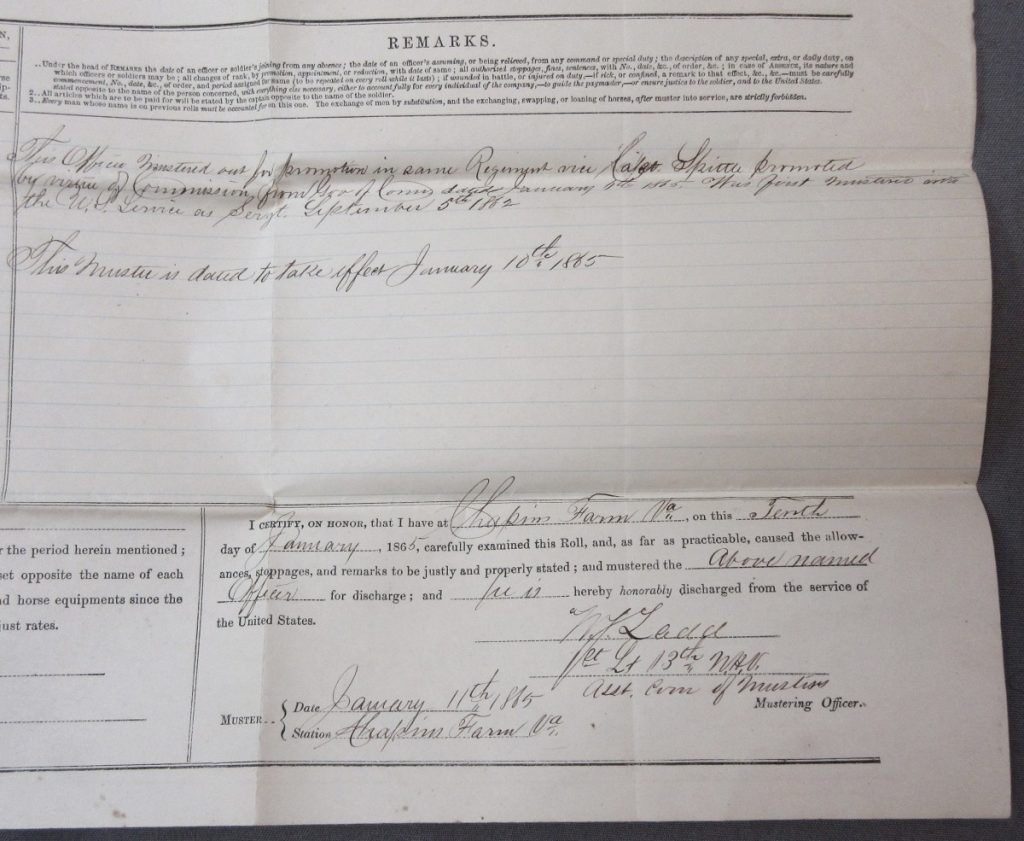 N,
REMARKS.
1..Under the head of REMARKS the date of an officer or soldier's joining from any absence; the date of an officer's assuming, or being relieved, from any command or special duty; the description of any special, extra, or daily duty, on
which officers or soldiers may be; all changes of rank, by promotion, appointment, or reduction, with date of same; all authorized stoppages, fines, sentences, with No., date, &c., of order, &c.; in case of ABSENCE, its nature and
commencement, No., date, &c., of order, and period assigned for same (to be repeated on every roll while it lasts); if wounded in battle, or injured on duty,—if sick, or confined, a remark to that effect, &c., &c.—must be carefully
stated opposite to the name of the person concerned, with everything else necessary, either to account fully for every individual of the company,—to guide the paymaster,—or ensure justice to the soldier, and to the United States.
2..All articles which are to be paid for will be stated by the captain opposite to the name of the soldier.
3..Every man whose name is on previous rolls must be accounted for on this one. The exchange of men by substitution, and the exchanging, swapping, or loaning of horses, after muster into service, are strictly forbidden.
This Officer Mustered out for promotion in same Regiment vice Capt. promoted
by virtue of Commission from Gov of Conn dated January 1865. Was first mustered into
the U.S. Service as Sergt. September 5th 1862
This Muster is dated to take effect January 10th 1865
r the period herein mentioned;
set opposite the name of each
nd horse equipments since the
just rates.
I CERTIFY, ON HONOR, that I have at Chapins Farm Va, on this Tenth
day of January, 1865, carefully examined this Roll, and, as far as practicable, caused the allow-
ances, stoppages, and remarks to be justly and properly stated; and mustered the Above named
Officer for discharge; and he is hereby honorably discharged from the service of
the United States.
Ladd
1st Lt 13th N.H.V.
Asst. Com of Musters
Mustering Officer.
MUSTER..
Date January 11th 1865
Station Chapins Farm Va.